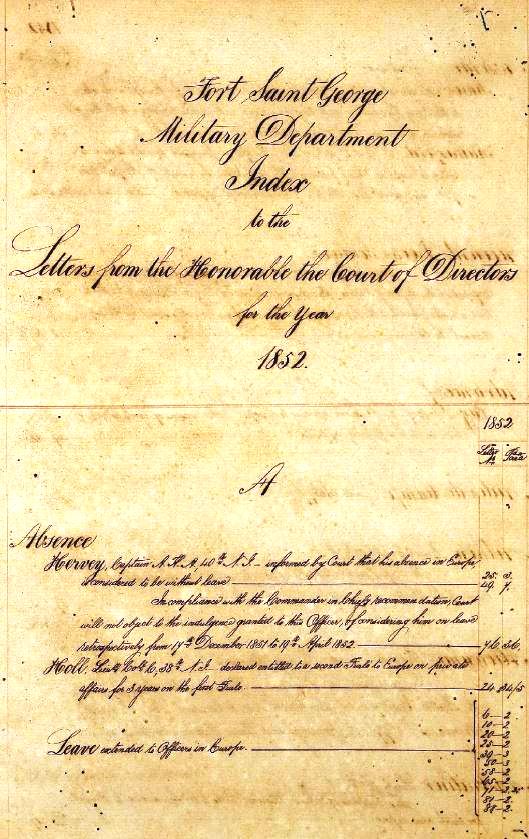 Fort Saint George
Military Department
Index
to the
Letters from the Honorable the Court of Directors
for the Year
1852.
1852
Letter No
A
Absence
Hervey, Captain A. H. A. 40th N. I. informed by Court that his absence in Europe
is considered to be without leave 25. 3.
49. 7.
In compliance with the Commander in Chiefs recommendation Court
will not object to the indulgence granted to this Officer, of considering him on leave
retrospectively from 17th December 1851 to 19th April 1852. 76
Holl, 38th N. I. declared entitled to a second Furlo to Europe on private
affairs for 3 years on the first Furlo. 24
6-2
10-2
20-2
25-2
39-3
50-3
58-2
65-2
71-2
81-2
88-2
Leave extended to Officers in Europe.